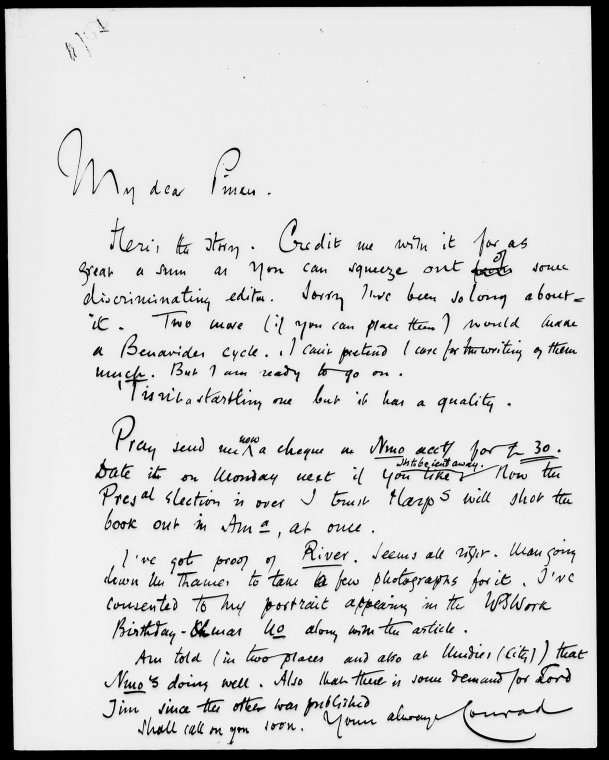 My dear Pinker.
Here's the story. Credit me with it for as
great a sum as you can squeeze out of some
discriminating editor. Sorry I've been so long about-
it. Two more (if you can place them) would make
a Benavides cycle. I can't pretend I care for the writing of them
much. But I am ready to go on.
'Tisn't a startling one but it has a quality.
Pray send me now a cheque on Nmo acct for £ 30.
Date it on Monday next if you like just be sent away. Now the
Presal Election is over I trust Harps will shot the
book out in Ama, at once.
I've got proof of River. Seems all right. Man going
down the Thames to take a few photographs for it. I've
consented to my portrait appearing in the WsWork
Birthday-Xmas No along with the article.
Am told (in two places and also at Mudies (City)) that
Nmo's doing well. Also that there is some demand for Lord
Jim since the other was published
Shall call on you soon. Yours always Conrad